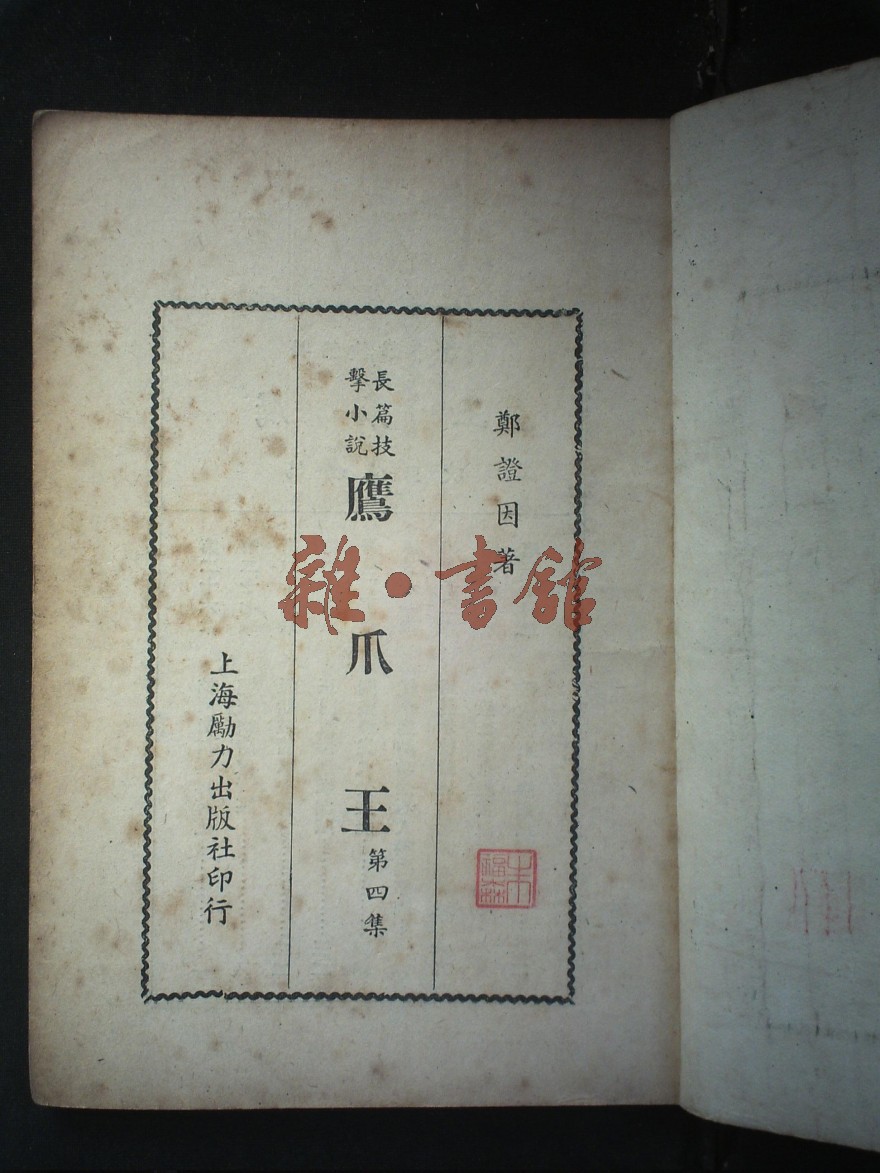 鄭證因著
長篇技擊小說
鷹爪王
第四集
上海勵力出版社印行
雜·書館
朱福森